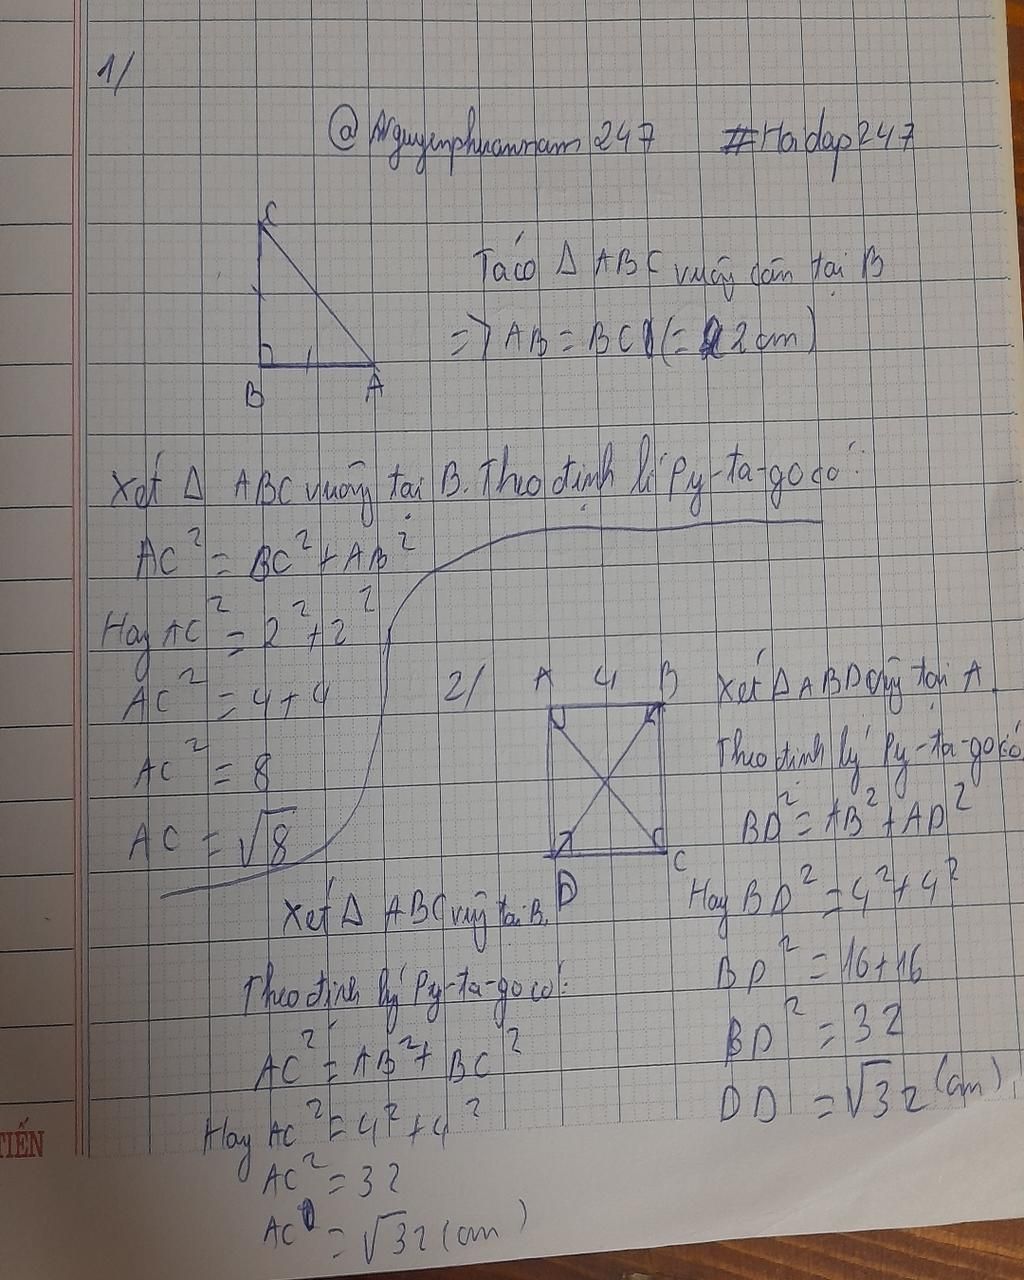 1/
@Nguyenphuannam247 #Hoidap247
C
Ta có Δ ABC vuông cân tại B
=> AB = BC (= 2 cm)
B A
Xét Δ ABC vuông tại B. Theo định lí Py-ta-go có:
AC² = BC² + AB²
Hay AC² = 2² + 2²
AC² = 4 + 4
AC² = 8
AC = √8
2/ A 4 B
D C
Xét Δ ABC vuông tại B.
Theo định lý Py-ta-go có:
AC² = AB² + BC²
Hay AC² = 4² + 4²
AC² = 32
AC = √32 (cm)
Xét Δ ABD vuông tại A
Theo định lý Py-ta-go có
BD² = AB² + AD²
Hay BD² = 4² + 4²
BD² = 16 + 16
BD² = 32
DD = √32 (cm)
TIẾN